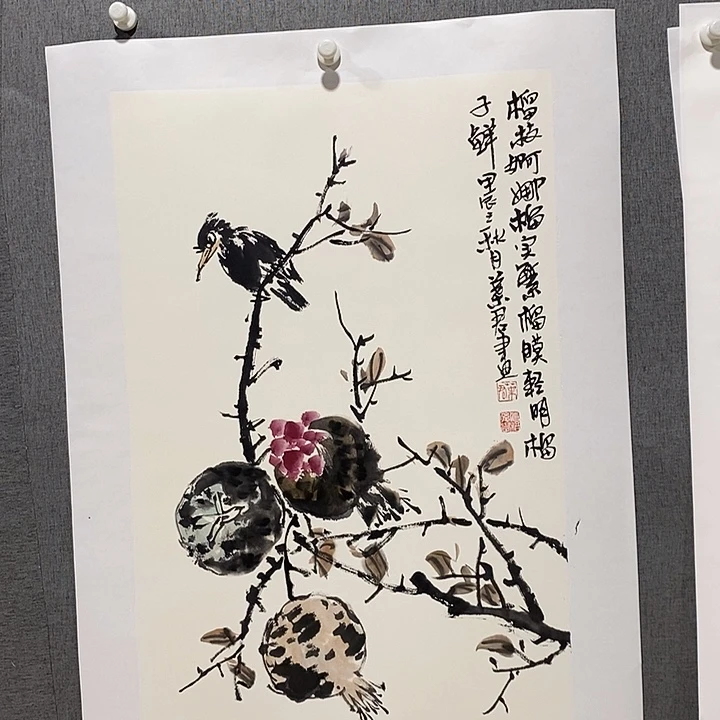 榴枝婀娜榴实繁榴膜轻明榴
子鲜 甲辰之秋月叶君画